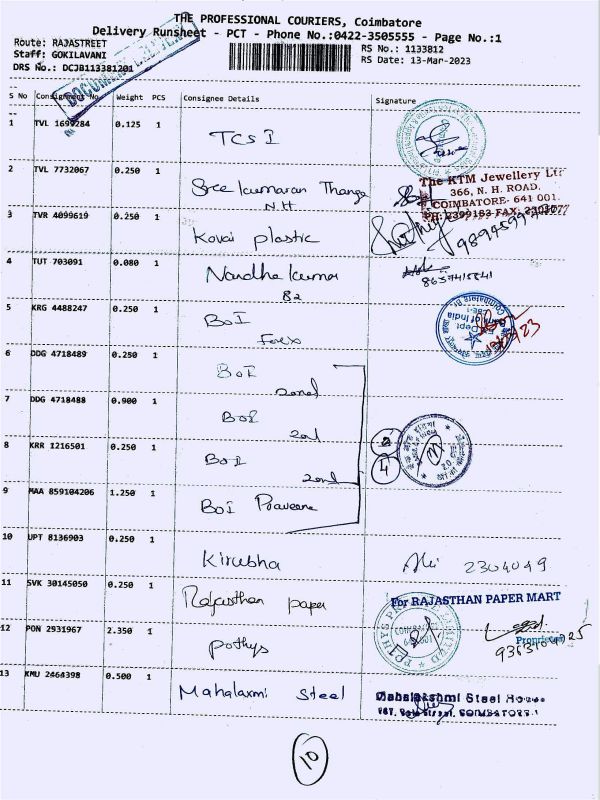 THE PROFESSIONAL COURIERS, Coimbatore
Delivery Runsheet - PCT - Phone No.:0422-3505555 - Page No.:1
Route: RAJASTREET
RS No.: 1133812
Staff: GOKILAVANI
RS Date: 13-Mar-2023
DRS No.: DCJB113381201
S No Consignment No. Weight PCS Consignee Details Signature
1 TVL 1699284 0.125 1 TCS I
2 TVL 7732067 0.250 1 Sree Kumaran Thanga
N.H
The KTM Jewellery Ltd
366, N. H. ROAD,
COIMBATORE- 641 001.
3 TVR 4099619 0.250 1 Kovai plastic
4 TUT 703091 0.080 1 Nandha kumar
82
5 KRG 4488247 0.250 1 BOI
Forex
6 DDG 4718489 0.250 1 BOI
zonal
7 DDG 4718488 0.900 1 BOI
8 KRR 1216501 0.250 1 BOI
4
9 MAA 859104206 1.250 1 BOI Praveena
10 UPT 8136903 0.250 1 Kirubha 2304049
11 SVK 30145050 0.250 1 Rajasthan paper
For RAJASTHAN PAPER MART
Proprietor
12 PON 2931967 2.350 1 pothys
13 KMU 2464398 0.500 1 Mahalaxmi Steel
Mahalakshmi Steel House
10